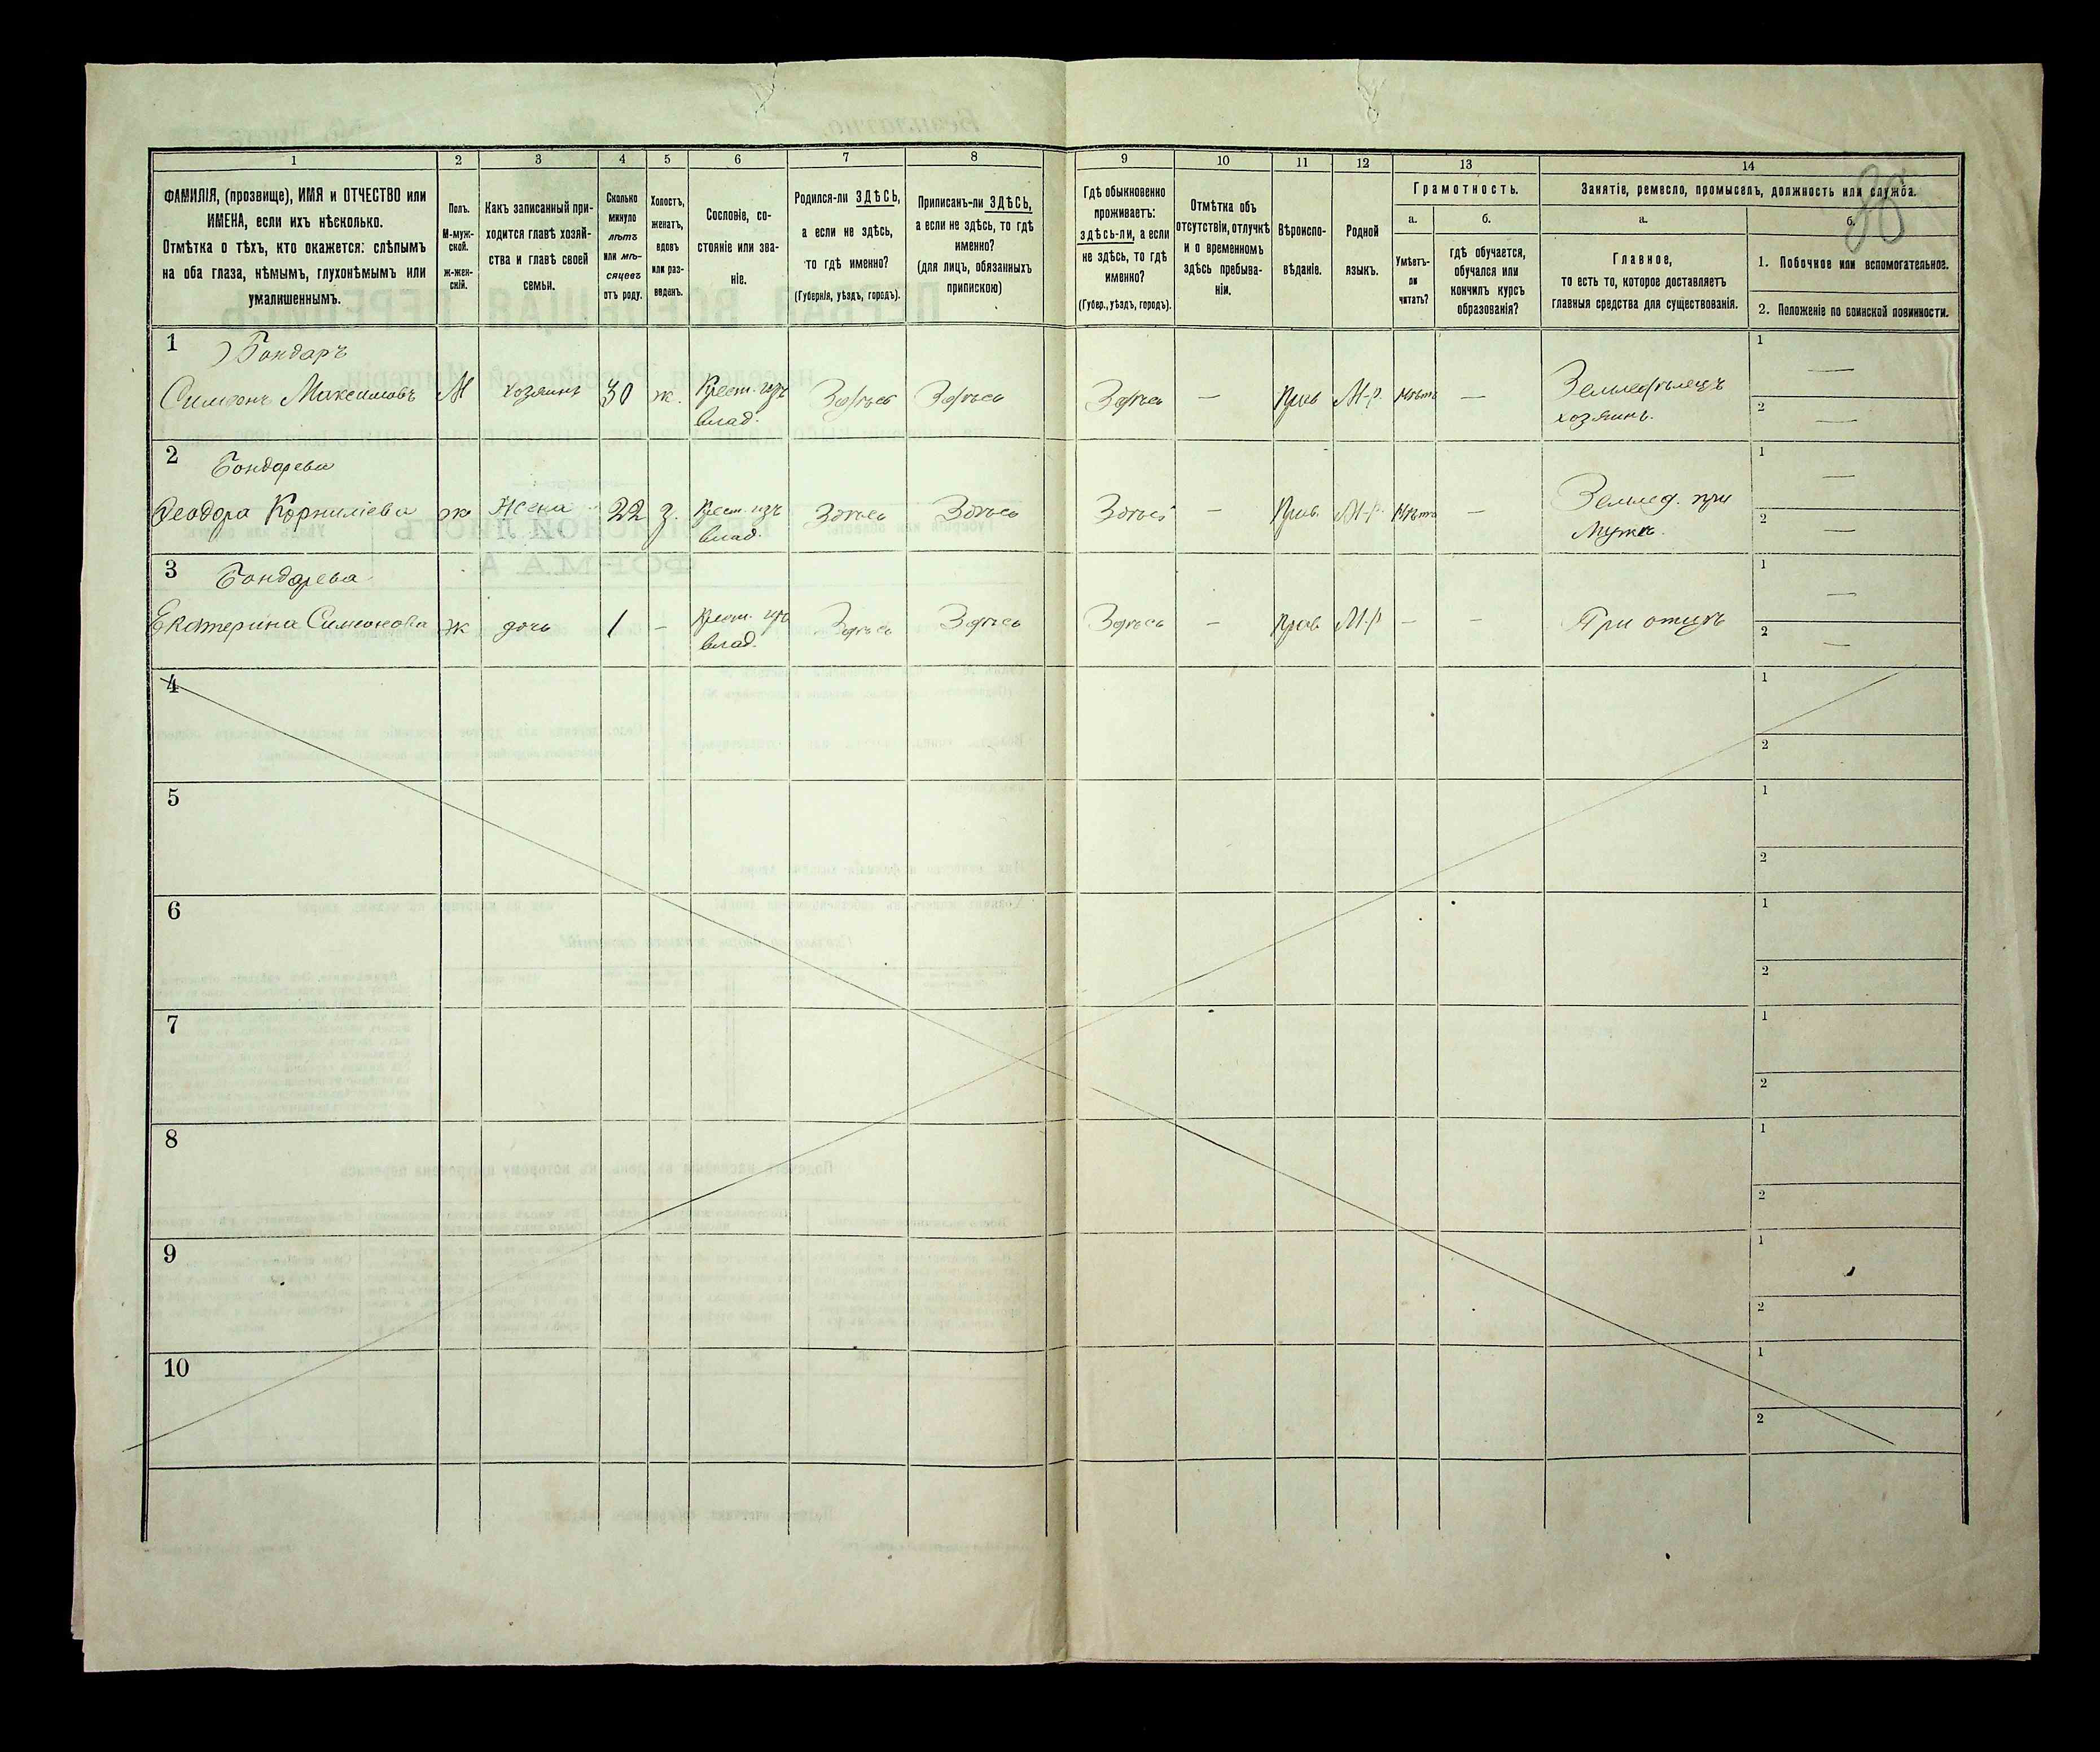 1 2 3 4 5 6 7 8 9 10 11 12 13 14
ФАМИЛІЯ, (прозвище), ИМЯ и ОТЧЕСТВО или
ИМЕНА, если ихъ нѣсколько.
Отмѣтка о тѣхъ, кто окажется: слѣпымъ
на оба глаза, нѣмымъ, глухонѣмымъ или
умалишеннымъ.
Полъ.
М-муж-
ской.
ж-жен-
скій.
Какъ записанный при-
ходится главѣ хозяй-
ства и главѣ своей
семьи.
Сколько
минуло
лѣтъ
или мѣ-
сяцевъ
отъ роду.
Холостъ,
женатъ,
вдовъ
или раз-
веденъ.
Сословіе, со-
стояніе или зва-
ніе.
Родился-ли ЗДѢСЬ,
а если не здѣсь,
то гдѣ именно?
(Губернія, уѣздъ, городъ).
Приписанъ-ли ЗДѢСЬ,
а если не здѣсь, то гдѣ
именно?
(для лицъ, обязанныхъ
припискою)
Гдѣ обыкновенно
проживаетъ:
здѣсь-ли, а если
не здѣсь, то гдѣ
именно?
(Губер., уѣздъ, городъ).
Отмѣтка объ
отсутствіи, отлучкѣ
и о временномъ
здѣсь пребыва-
ніи.
Вѣроиспо-
вѣданіе.
Родной
языкъ.
Грамотность.
а. б.
Умѣетъ-
ли
читать?
гдѣ обучается,
обучался или
кончилъ курсъ
образованія?
Занятіе, ремесло, промыселъ, должность или служба.
а. б.
Главное,
то есть то, которое доставляетъ
главныя средства для существованія.
1. Побочное или вспомогательное.
2. Положеніе по воинской повинности.
1 Бондаръ 1
Симеонъ Максимовъ М хозяинъ 30 ж. Крест. изъ Здѣсь Здѣсь Здѣсь — Прав М-р. Нѣтъ — Земледѣлецъ —
влад. хозяинъ. 2 —
2 Бондарева 1 —
Феодора Корниліева ж Жена 22 З. Крест. изъ Здѣсь Здѣсь Здѣсь — Прав. М-р. Нѣтъ — Землед. при
влад. Мужѣ. 2 —
3 Бондарева 1 —
Екатерина Симеонова ж дочь 1 — Крест. изъ Здѣсь Здѣсь Здѣсь — Прав М-р — — При отцѣ
влад. 2 —
4 1
2
5 1
2
6 1
2
7 1
2
8 1
2
9 1
2
10 1
2